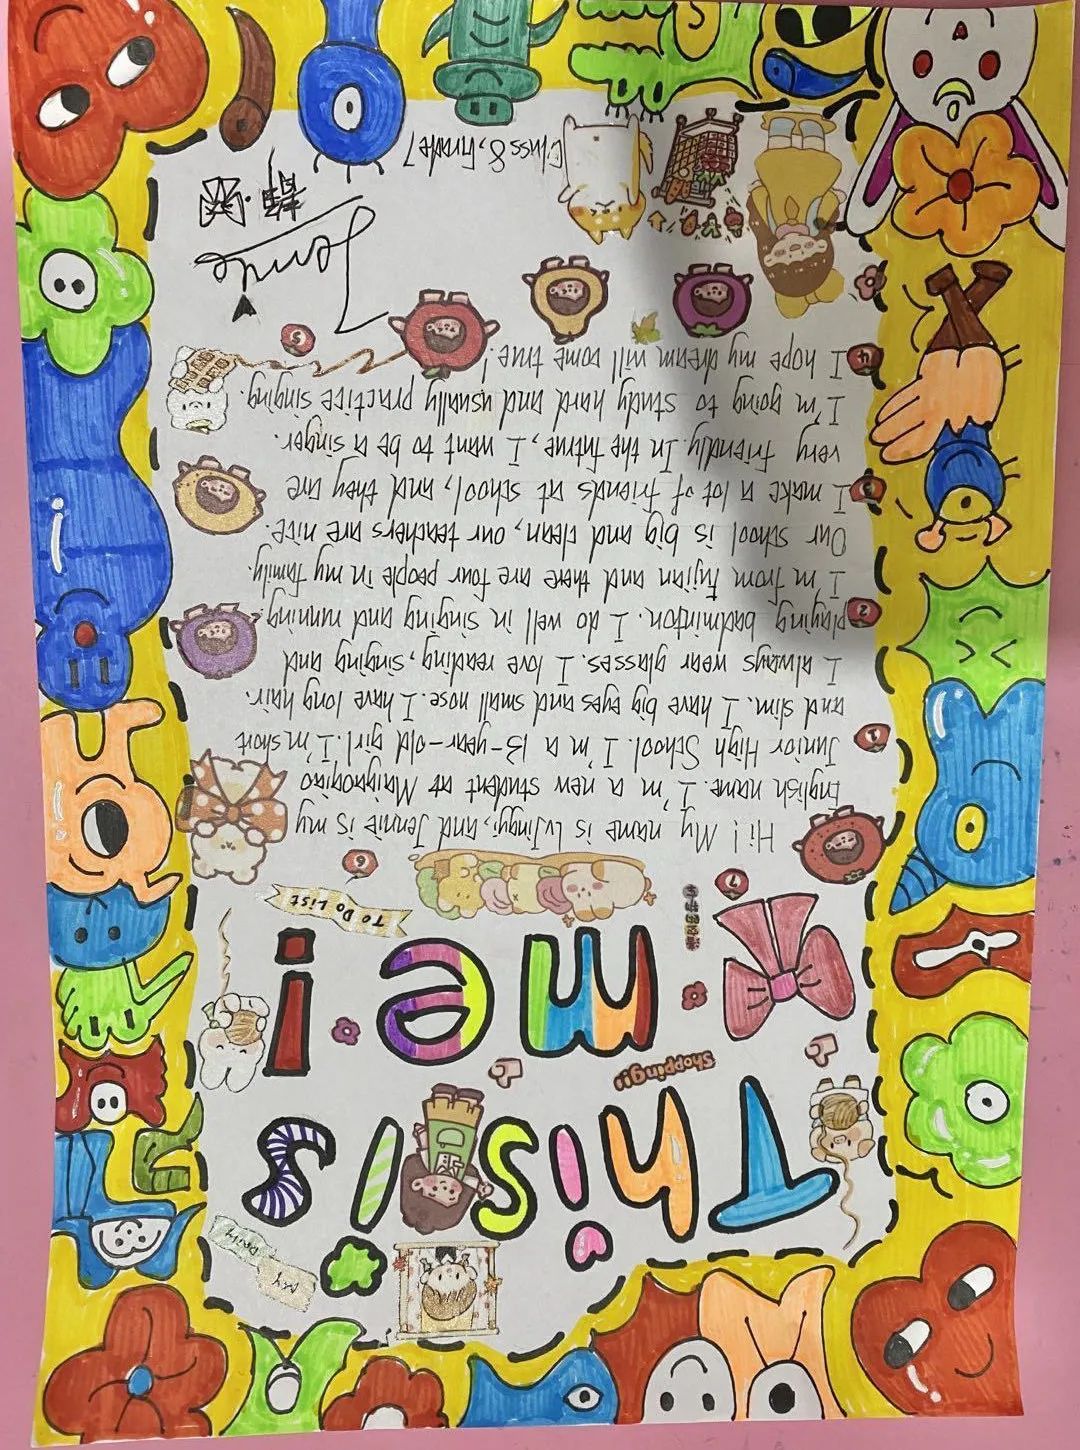 This is
me!
MY
DAILY
Shopping!!
TO DO LIST
Hi! My name is LvJingyi, and Jennie is my
English name. I'm a new student at Maigaoqiao
Junior High School. I'm a 13-year-old girl. I'm short
and slim. I have big eyes and small nose. I have long hair.
I always wear glasses. I love reading, singing and
playing badminton. I do well in singing and running
I'm from Fujian and there are four people in my family.
Our school is big and clean, our teachers are nice.
I make a lot of friends at school, and they are
very friendly. In the future, I want to be a singer.
I'm going to study hard and usually practice singing.
I hope my dream will come true!
1
2
3
4
5
6
7
Jennie
Class 8, Grade 7